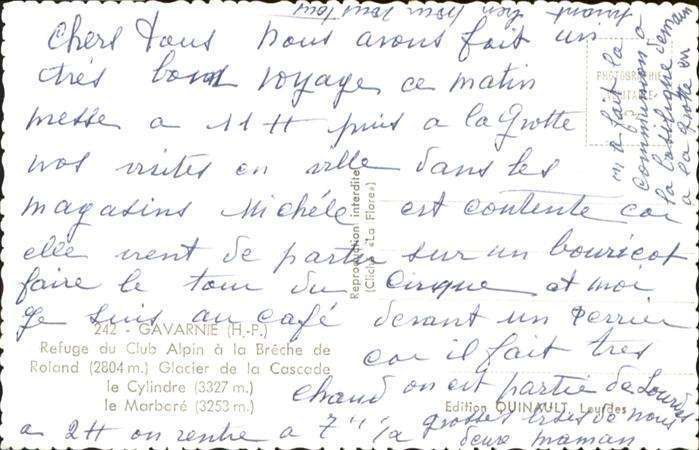 Chers Tous nous avons fait un
trés bon voyage ce matin
messe a 11H puis a la Grotte
nos visites en ville dans les
magasins Michéle est contente car
elle vient de partir sur un bouricot
faire le tour du Cirque et moi
je suis au café devant un Perrier
car il fait tres
chaud on est partie de Lourdes
a 2H on rentre a 7H grosses bises de nous
deux maman
on a fait la
communion a
la basilique demain
a la grotte on
bien pour vous tous
242 - GAVARNIE (H.-P.)
Refuge du Club Alpin à la Brèche de
Roland (2804 m.) Glacier de la Cascade
le Cylindre (3327 m.)
le Marboré (3253 m.)
Reproduction interdite
(Cliché «La Flore»)
Edition QUINAULT, Lourdes
PHOTOGRAPHIE